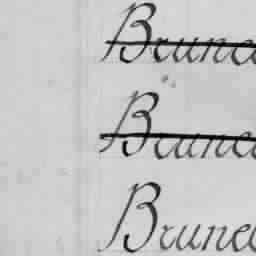 Brunel
Brunel
Brunel